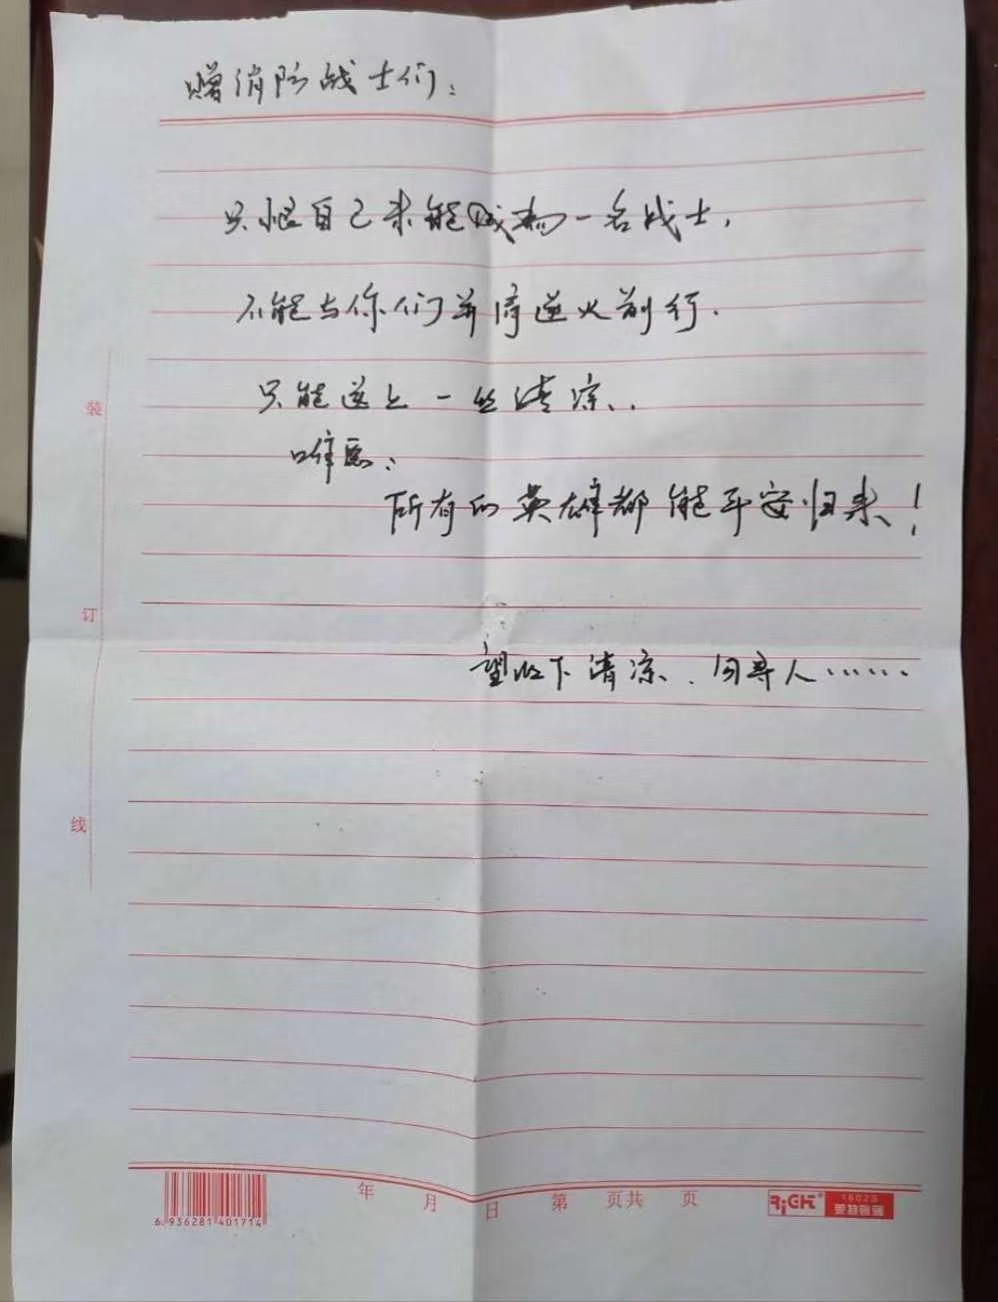 赠消防战士们：
只恨自己未能成为一名战士，
不能与你们并肩逆火前行.
只能送上一丝清凉..
唯愿：
所有的英雄都能平安归来！
望收下清凉.勿寻人……
装
订
线
年 月 日 第 页共 页
6 936281 401714
RiCH
16025